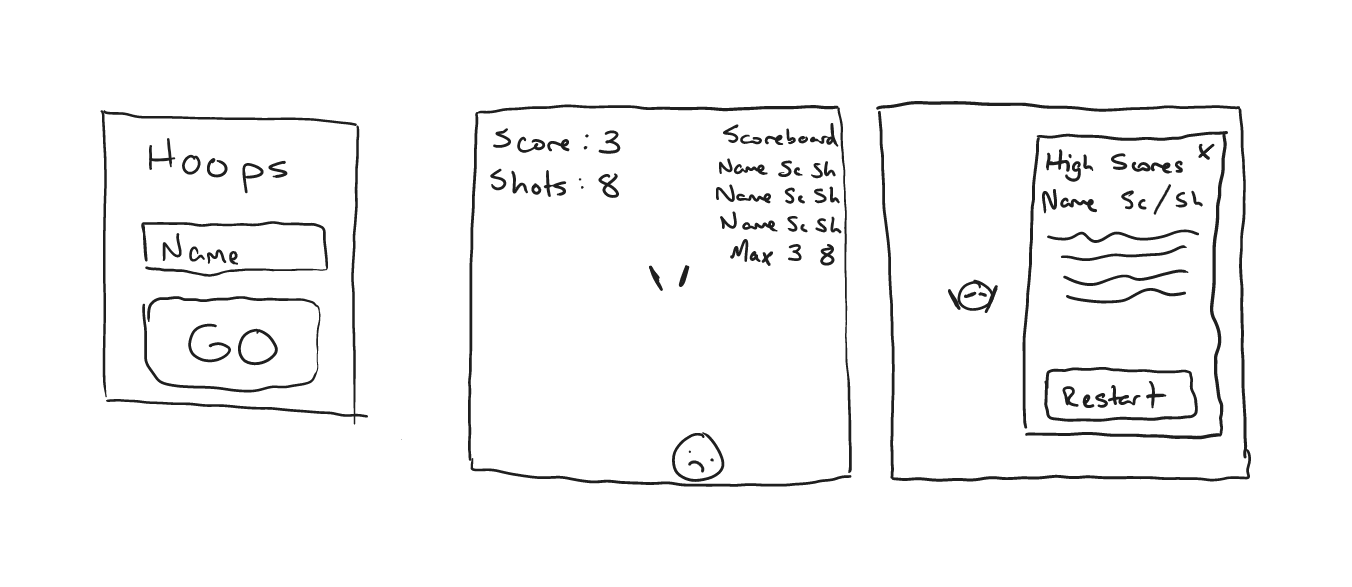 Hoops
Name
GO
Score: 3
Shots: 8
Scoreboard
Name Sc Sh
Name Sc Sh
Name Sc Sh
Max 3 8
High Scores X
Name Sc/Sh
Restart